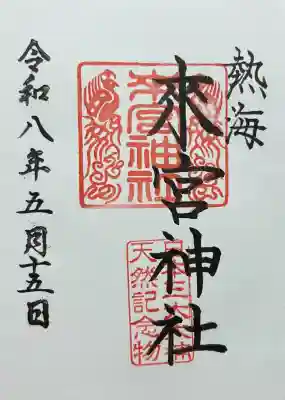 熱海
來宮神社
來宮神社
天然記念物
令和八年五月十五日